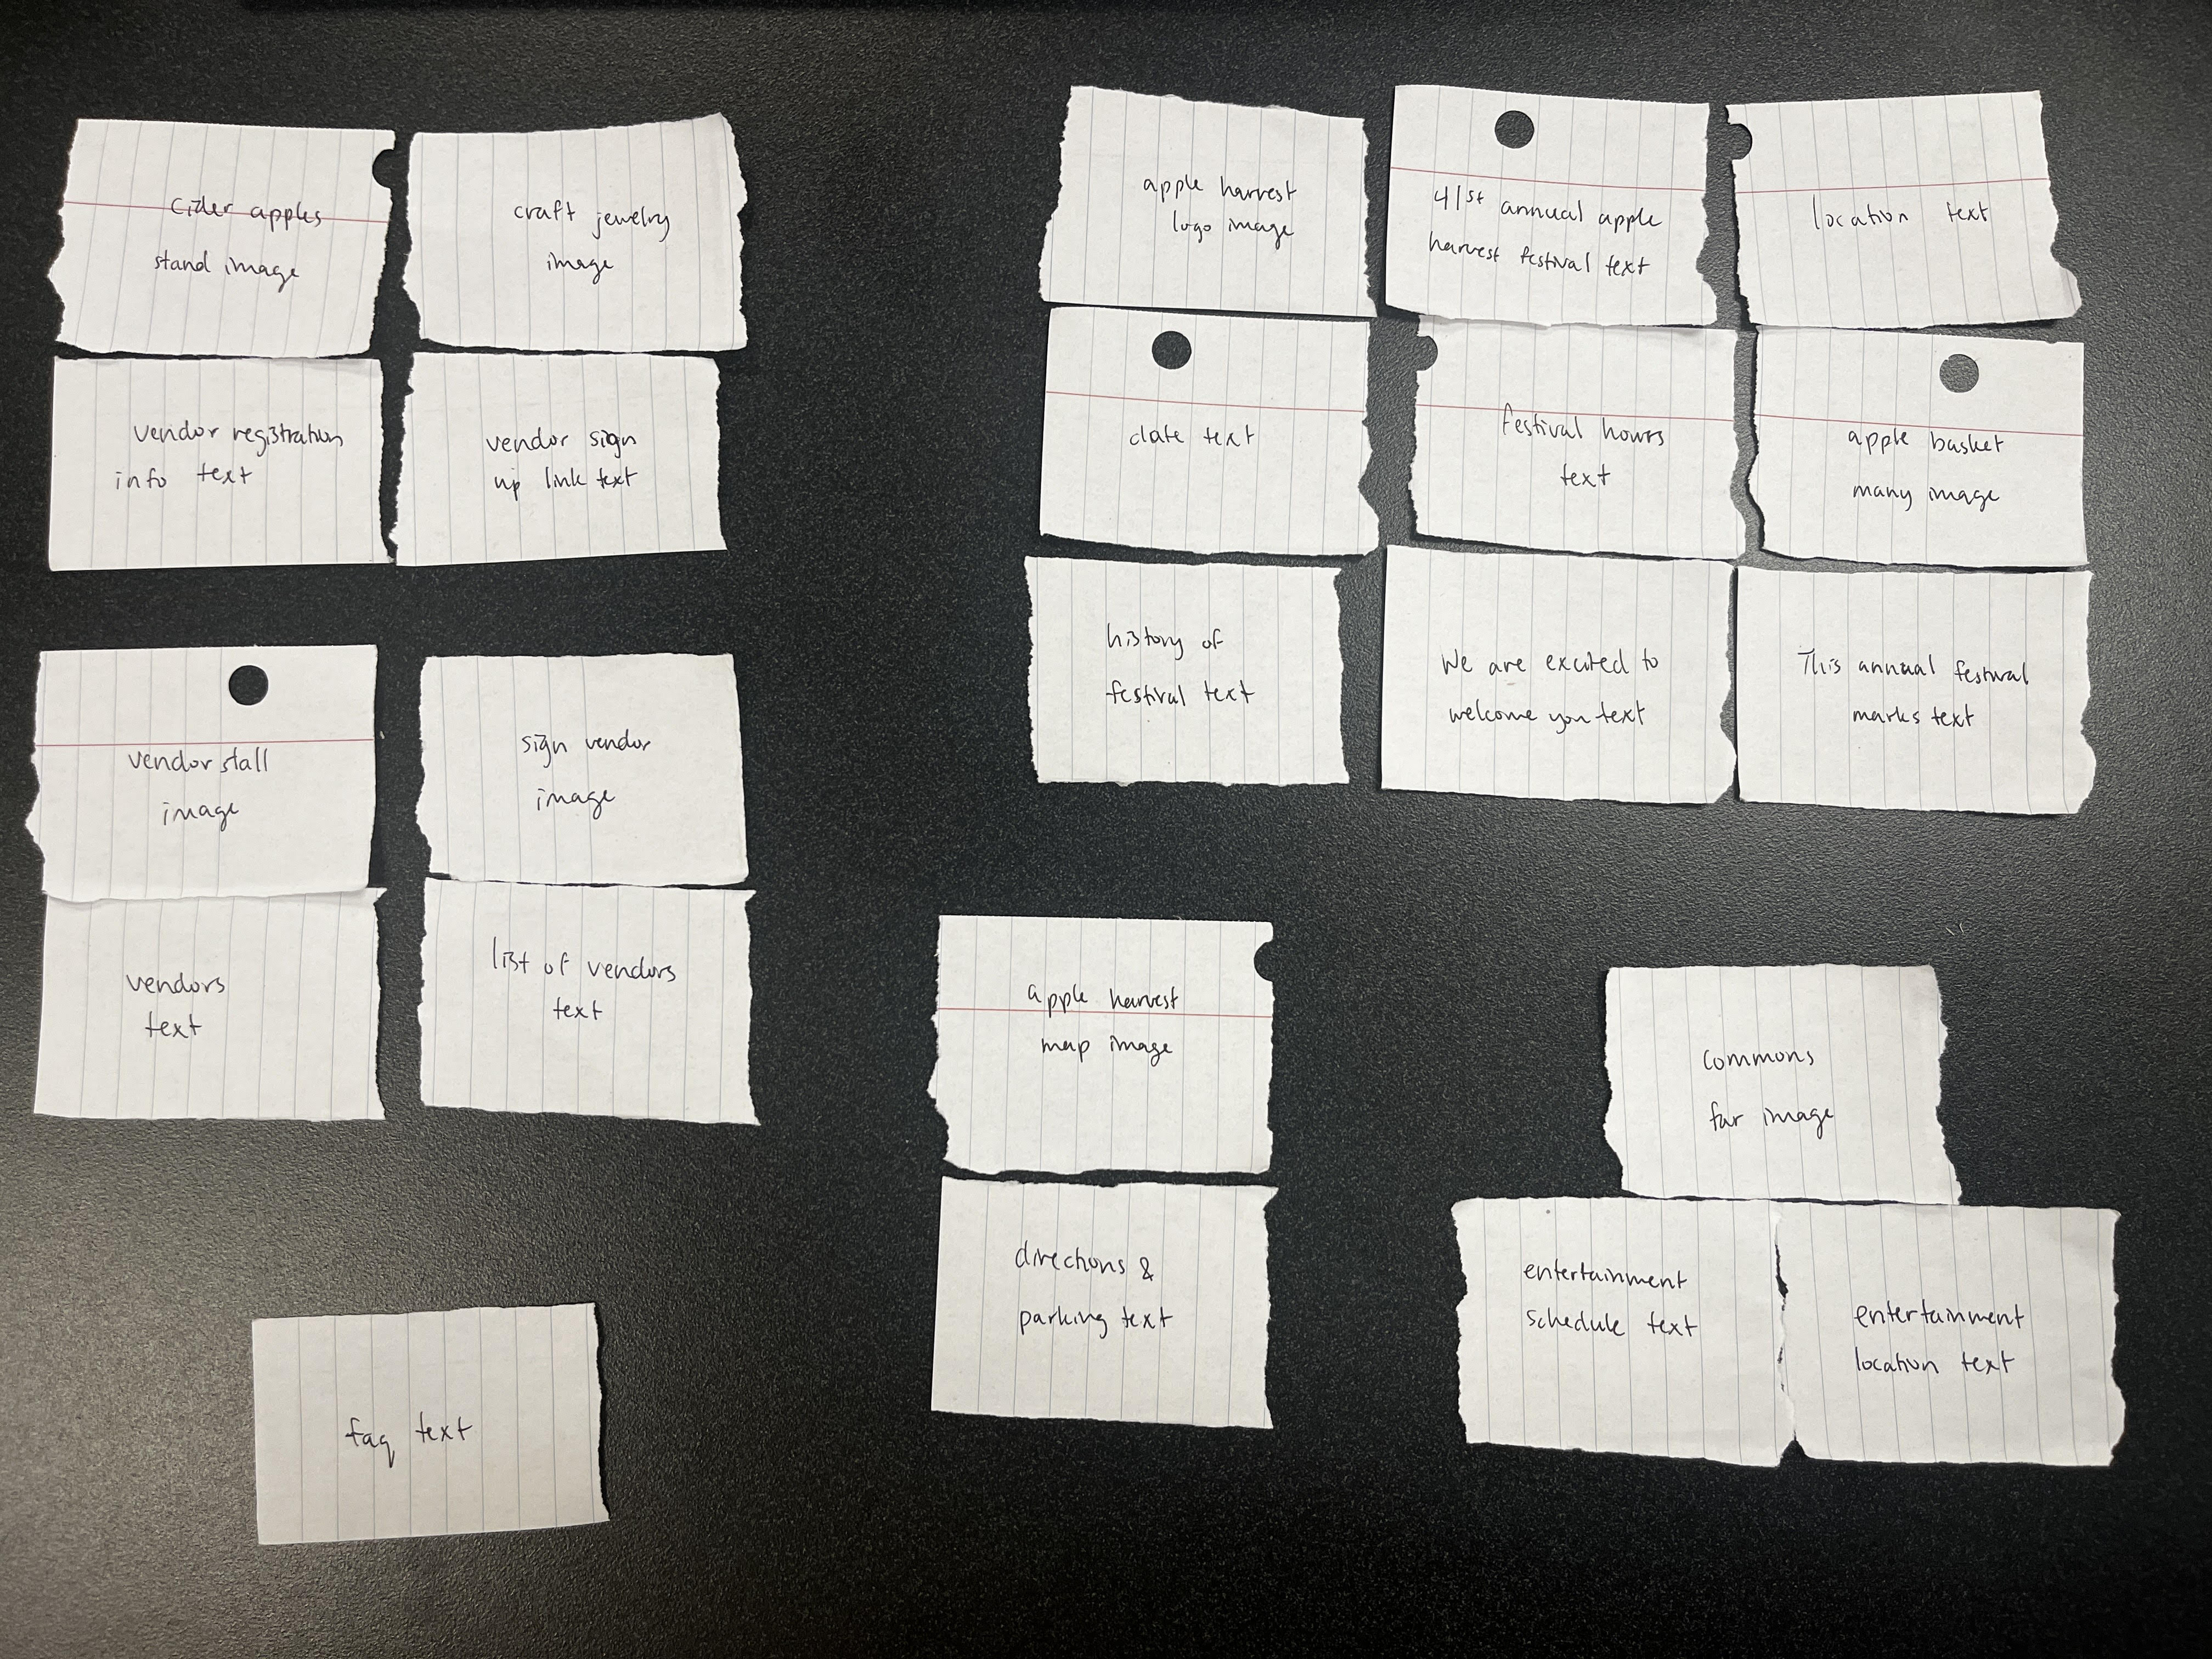 cider apples
stand image
craft jewelry
image
vendor registration
info text
vendor sign
up link text
vendor stall
image
sign vendor
image
vendors
text
list of vendors
text
faq text
apple harvest
logo image
41st annual apple
harvest festival text
location text
date text
festival hours
text
apple basket
many image
history of
festival text
We are excited to
welcome you text
This annual festival
marks text
apple harvest
map image
directions &
parking text
commons
far image
entertainment
schedule text
entertainment
location text